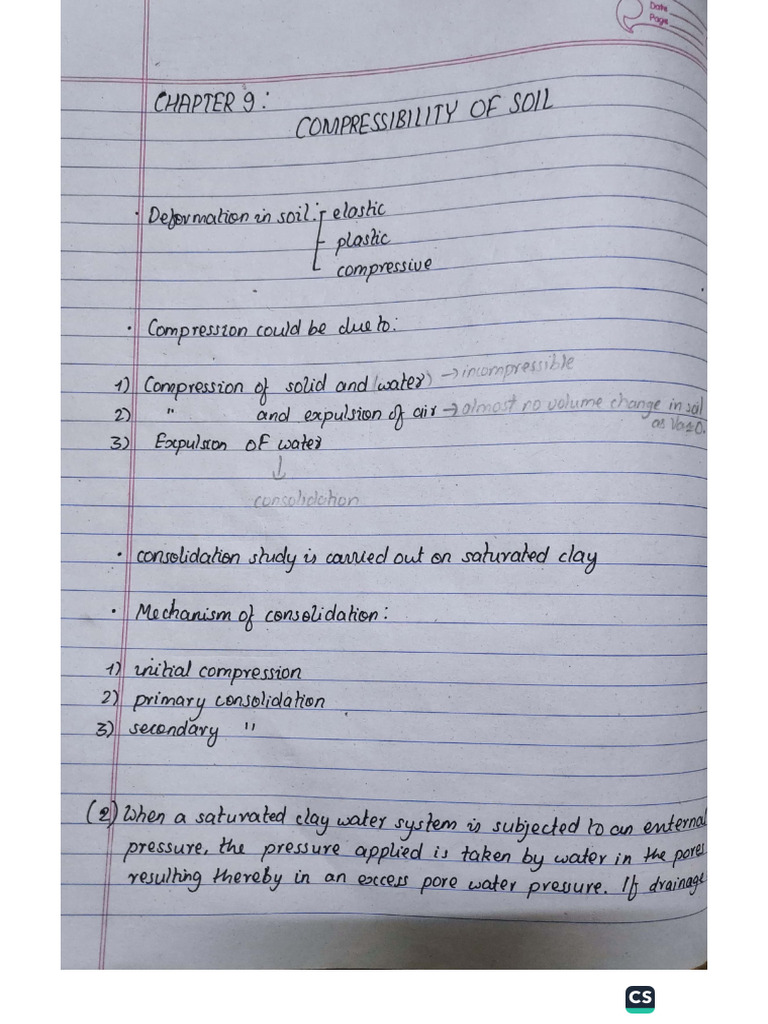 Date
Page
CHAPTER 9:
COMPRESSIBILITY OF SOIL
· Deformation in soil: elastic
plastic
compressive
· Compression could be due to:
1) Compression of solid and (water) → incompressible
2) " and expulsion of air → almost no volume change in soil
as Va≈0.
3) Expulsion OF water
↓
consolidation
· consolidation study is carried out on saturated clay
· Mechanism of consolidation:
1) initial compression
2) primary consolidation
3) secondary "
(2) When a saturated clay water system is subjected to an external
pressure, the pressure applied is taken by water in the pores
resulting thereby in an excess pore water pressure. If drainage
CS